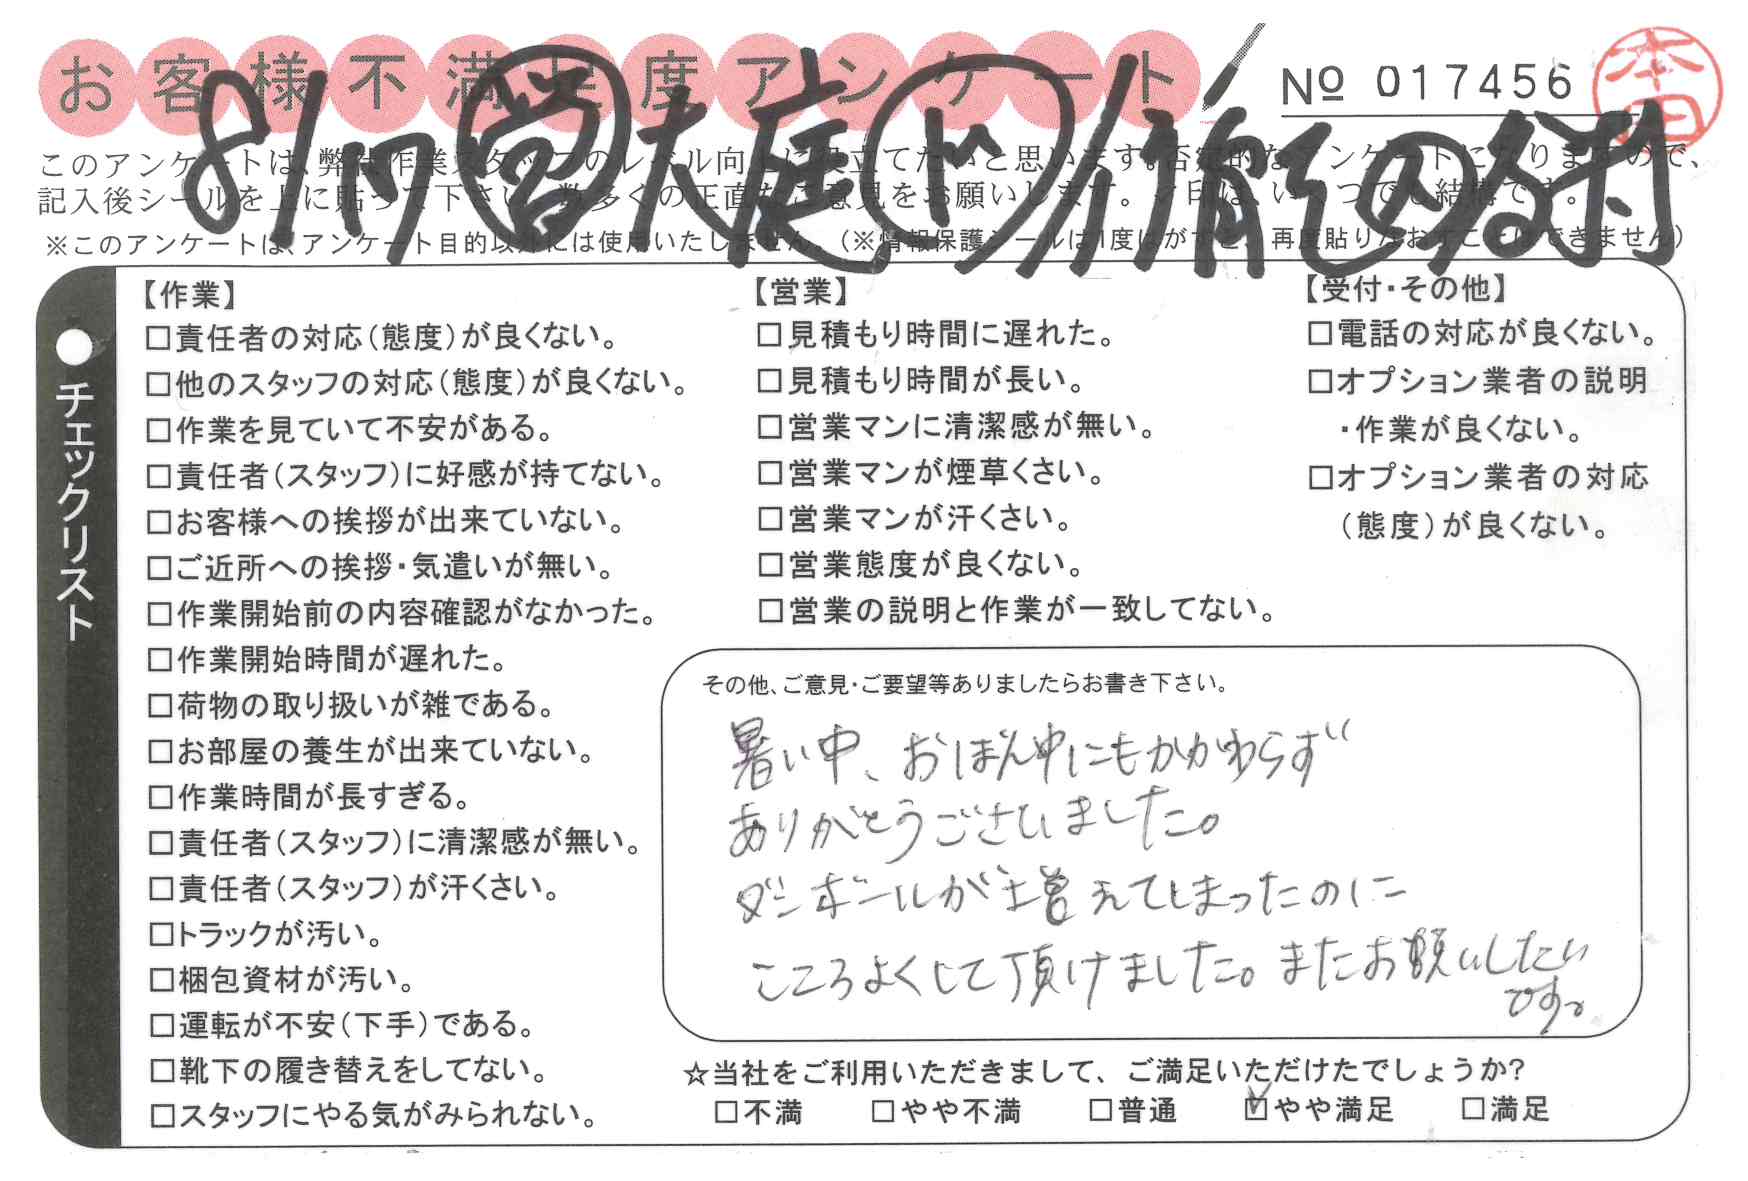 お客様不満足度アンケート
№ 017456
本田
8/17 営 大庭
このアンケートは、弊社作業スタッフのレベル向上に役立てたいと思います。否定的なアンケートになりますので、
記入後シールを上に貼って下さい。数多くの正直なご意見をお願いします。✓印は、いくつでも結構です。
※このアンケートは、アンケート目的以外には使用いたしません。(※情報保護シールは1度はがすと、再度貼りなおすことはできません)
チェックリスト
【作業】
□責任者の対応(態度)が良くない。
□他のスタッフの対応(態度)が良くない。
□作業を見ていて不安がある。
□責任者(スタッフ)に好感が持てない。
□お客様への挨拶が出来ていない。
□ご近所への挨拶・気遣いが無い。
□作業開始前の内容確認がなかった。
□作業開始時間が遅れた。
□荷物の取り扱いが雑である。
□お部屋の養生が出来ていない。
□作業時間が長すぎる。
□責任者(スタッフ)に清潔感が無い。
□責任者(スタッフ)が汗くさい。
□トラックが汚い。
□梱包資材が汚い。
□運転が不安(下手)である。
□靴下の履き替えをしてない。
□スタッフにやる気がみられない。
【営業】
□見積もり時間に遅れた。
□見積もり時間が長い。
□営業マンに清潔感が無い。
□営業マンが煙草くさい。
□営業マンが汗くさい。
□営業態度が良くない。
□営業の説明と作業が一致してない。
【受付・その他】
□電話の対応が良くない。
□オプション業者の説明
・作業が良くない。
□オプション業者の対応
(態度)が良くない。
その他、ご意見・ご要望等ありましたらお書き下さい。
暑い中、おぼん中にもかかわらず
ありがとうございました。
ダンボールが増えてしまったのに
こころよくして頂けました。またお願いしたい
です。
☆当社をご利用いただきまして、ご満足いただけたでしょうか?
□不満 □やや不満 □普通 ☑やや満足 □満足